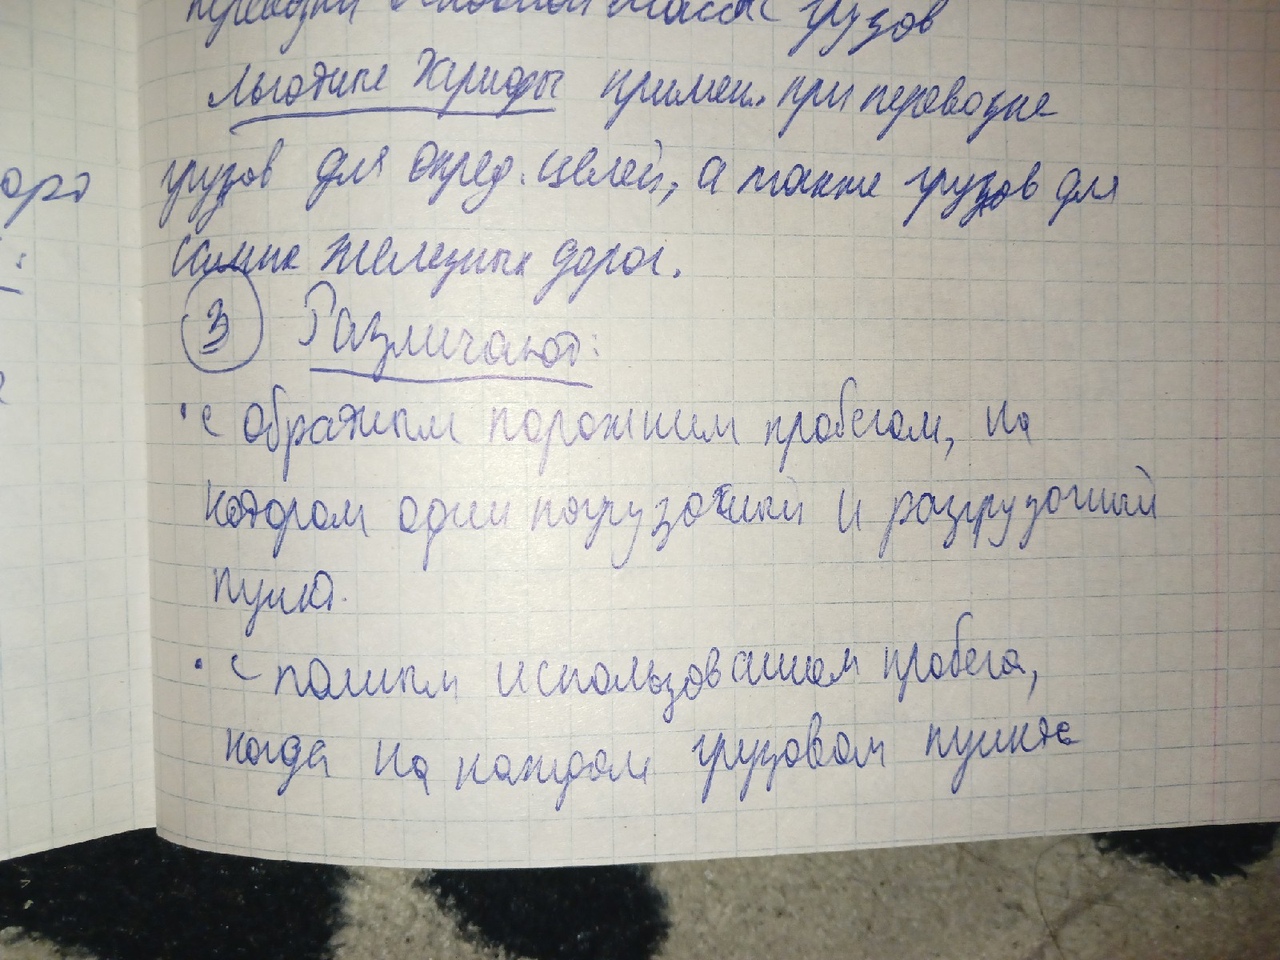 перевозки основной массы грузов
льготные тарифы примен. при перевозке
грузов для опред. целей, а также грузов для
самих железных дорог.
3 Различают:
• с обратным порожним пробегом, на
котором один погрузочный и разгрузочный
пункт.
• с полным использованием пробега,
когда на каждом грузовом пункте